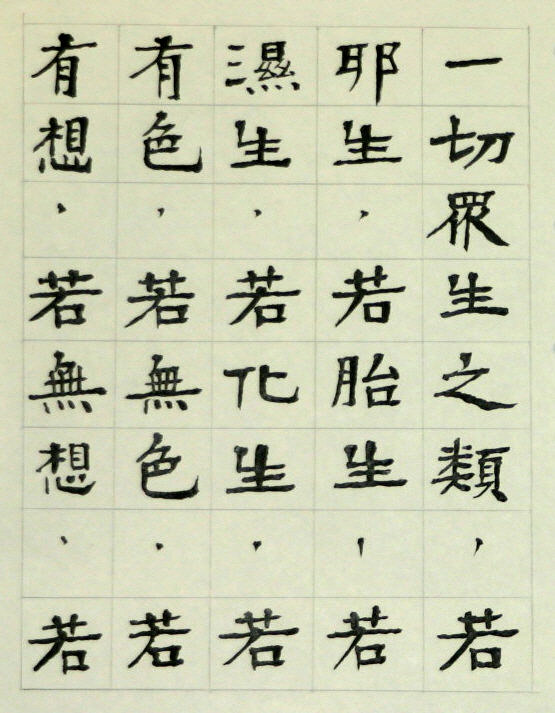 一切眾生之類，若
耶生，若胎生，若
濕生，若化生，若
有色，若無色，若
有想，若無想，若